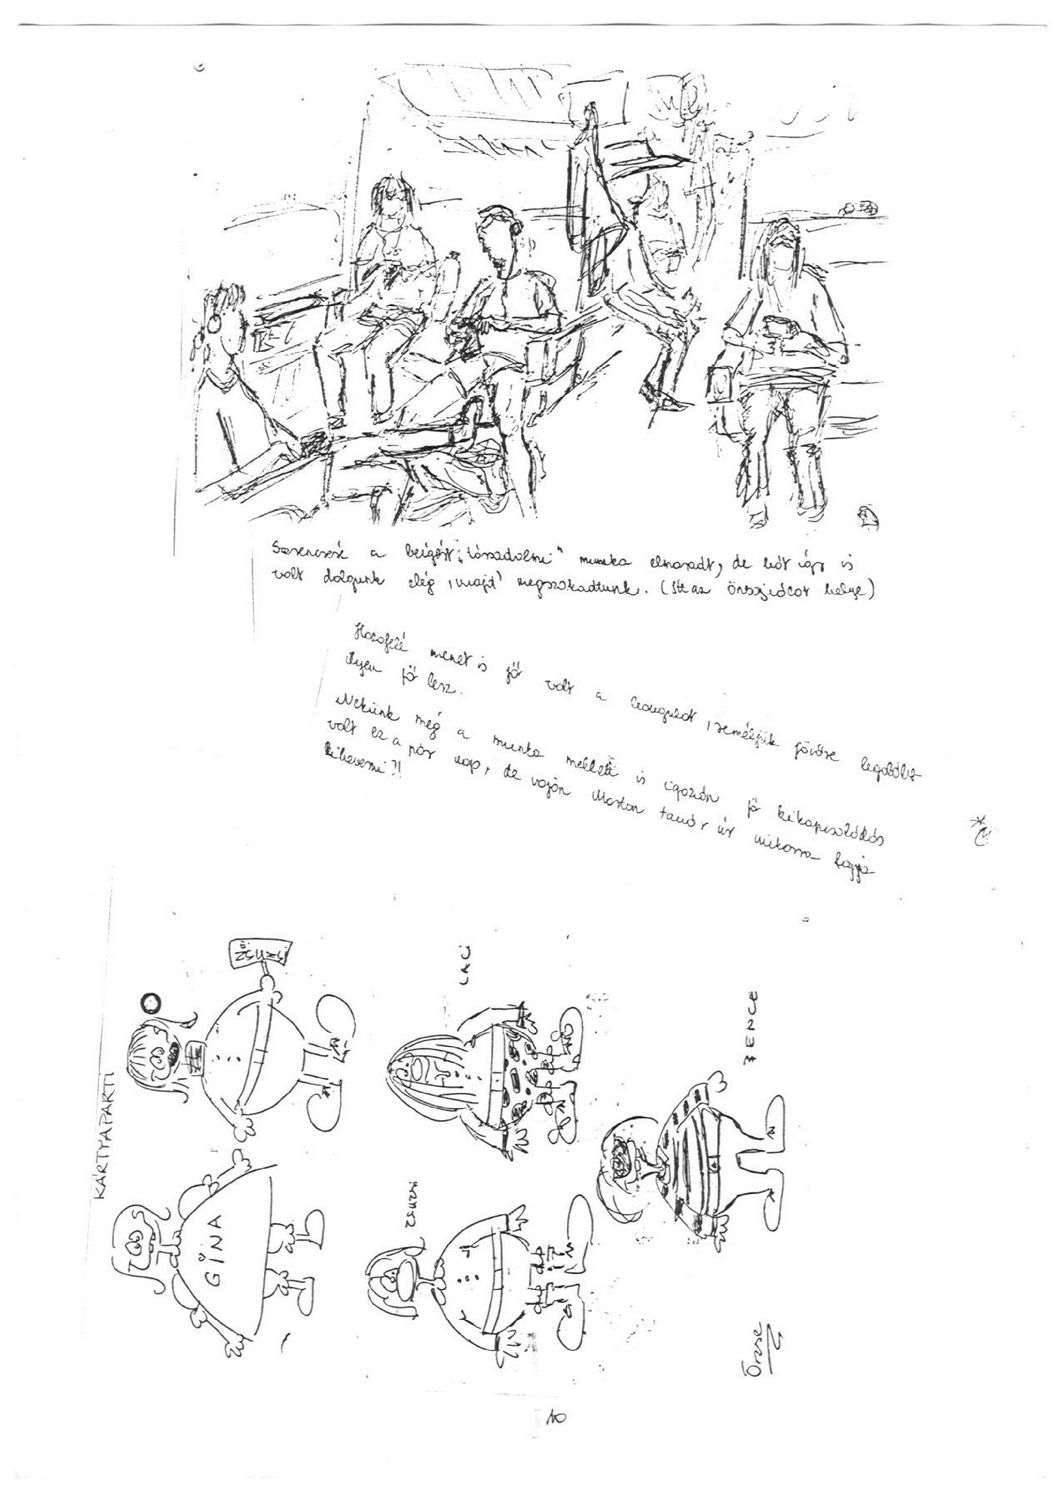 Szerencsére a beígért „társadalmi” munka elmaradt, de hát így is
volt dolgunk elég, majd megszakadtunk. (Itt az önsajnálat helye)
Hazafelé menet is jó volt a hangulat, reméljük jövőre legalább
ilyen jó lesz.
Nekünk még a munka mellett is igazán jó kikapcsolódás
volt ez a pár nap, de vajon Marton tanár úr mikorra fogja
kiheverni?!
KÁRTYAPARTI
GINA
ZSUZSI
LACI
BENCE
Őzse
10